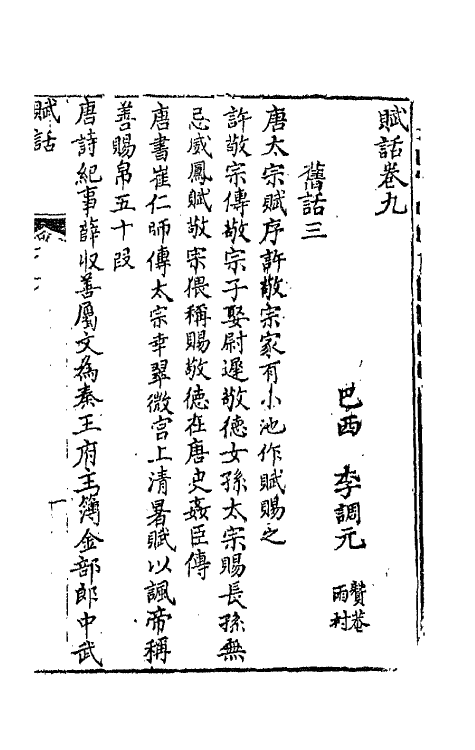 賦話卷九
巴西 李調元 贊菴 雨村
舊話三
唐太宗賦序許敬宗家有小池作賦賜之
許敬宗傳敬宗子娶尉遲敬德女孫太宗賜長孫無
忌威鳳賦敬宗猥稱賜敬德在唐史姦臣傳
唐書崔仁師傳太宗幸翠微宮上清暑賦以諷帝稱
善賜帛五十段
唐詩紀事薛收善屬文爲秦王府主簿金部郎中武
賦話